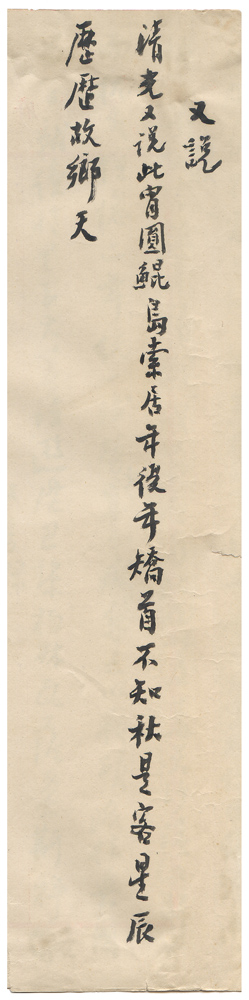 又說
清光又說此宵圓鯤島索居年復年矯首不知秋是客星辰
歷歷故鄉天